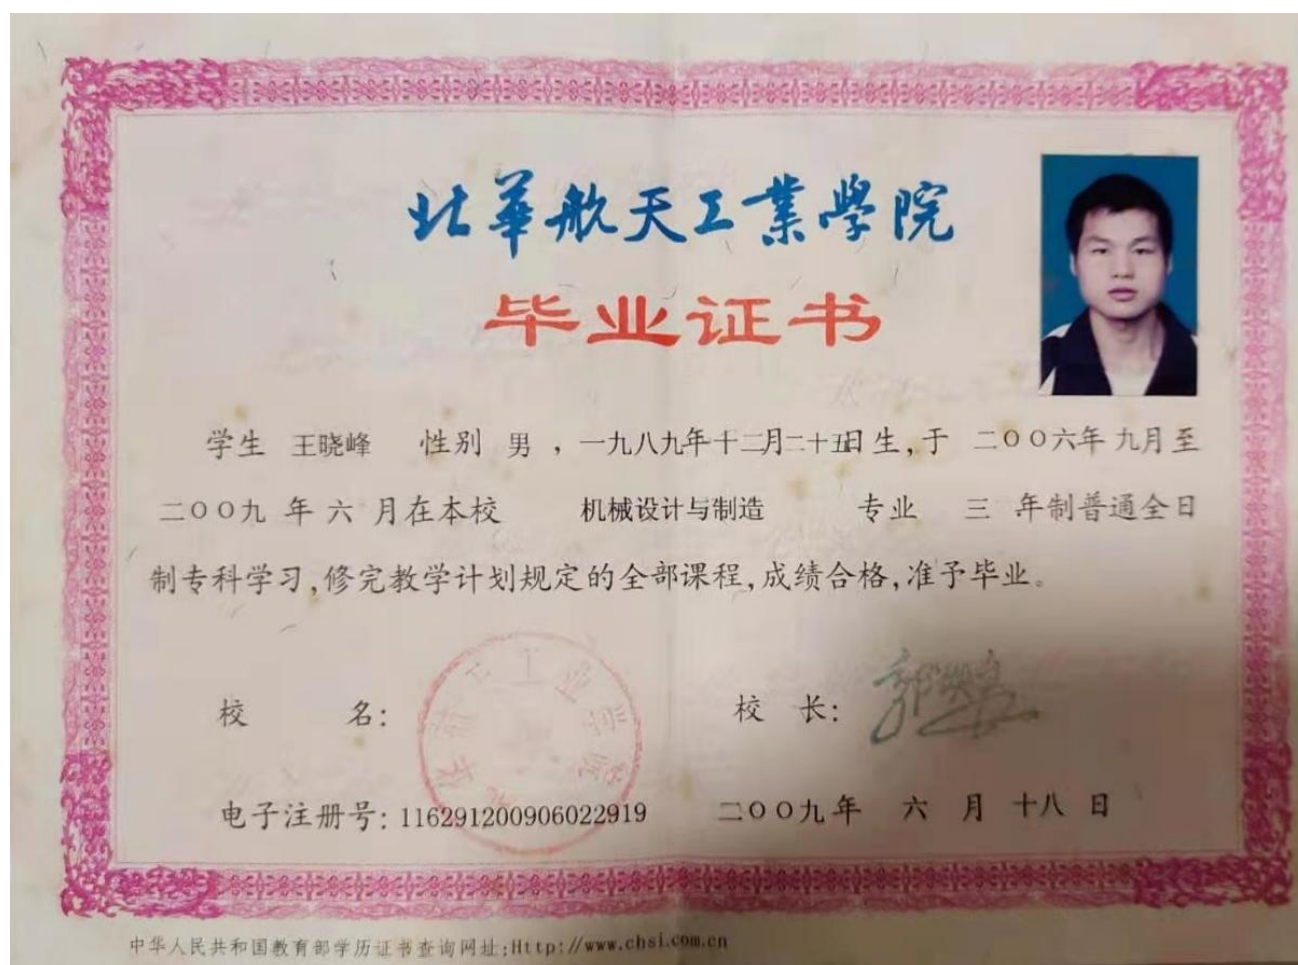 北華航天工業學院
毕业证书
学生 王晓峰 性别 男 ，一九八九年十二月二十五日生，于 二〇〇六年九月至
二〇〇九 年 六 月在本校 机械设计与制造 专业 三 年制普通全日
制专科学习，修完教学计划规定的全部课程，成绩合格，准予毕业。
校 名： 校 长：
电子注册号：116291200906022919 二〇〇九年 六 月 十八 日
中华人民共和国教育部学历证书查询网址：Http://www.chsi.com.cn